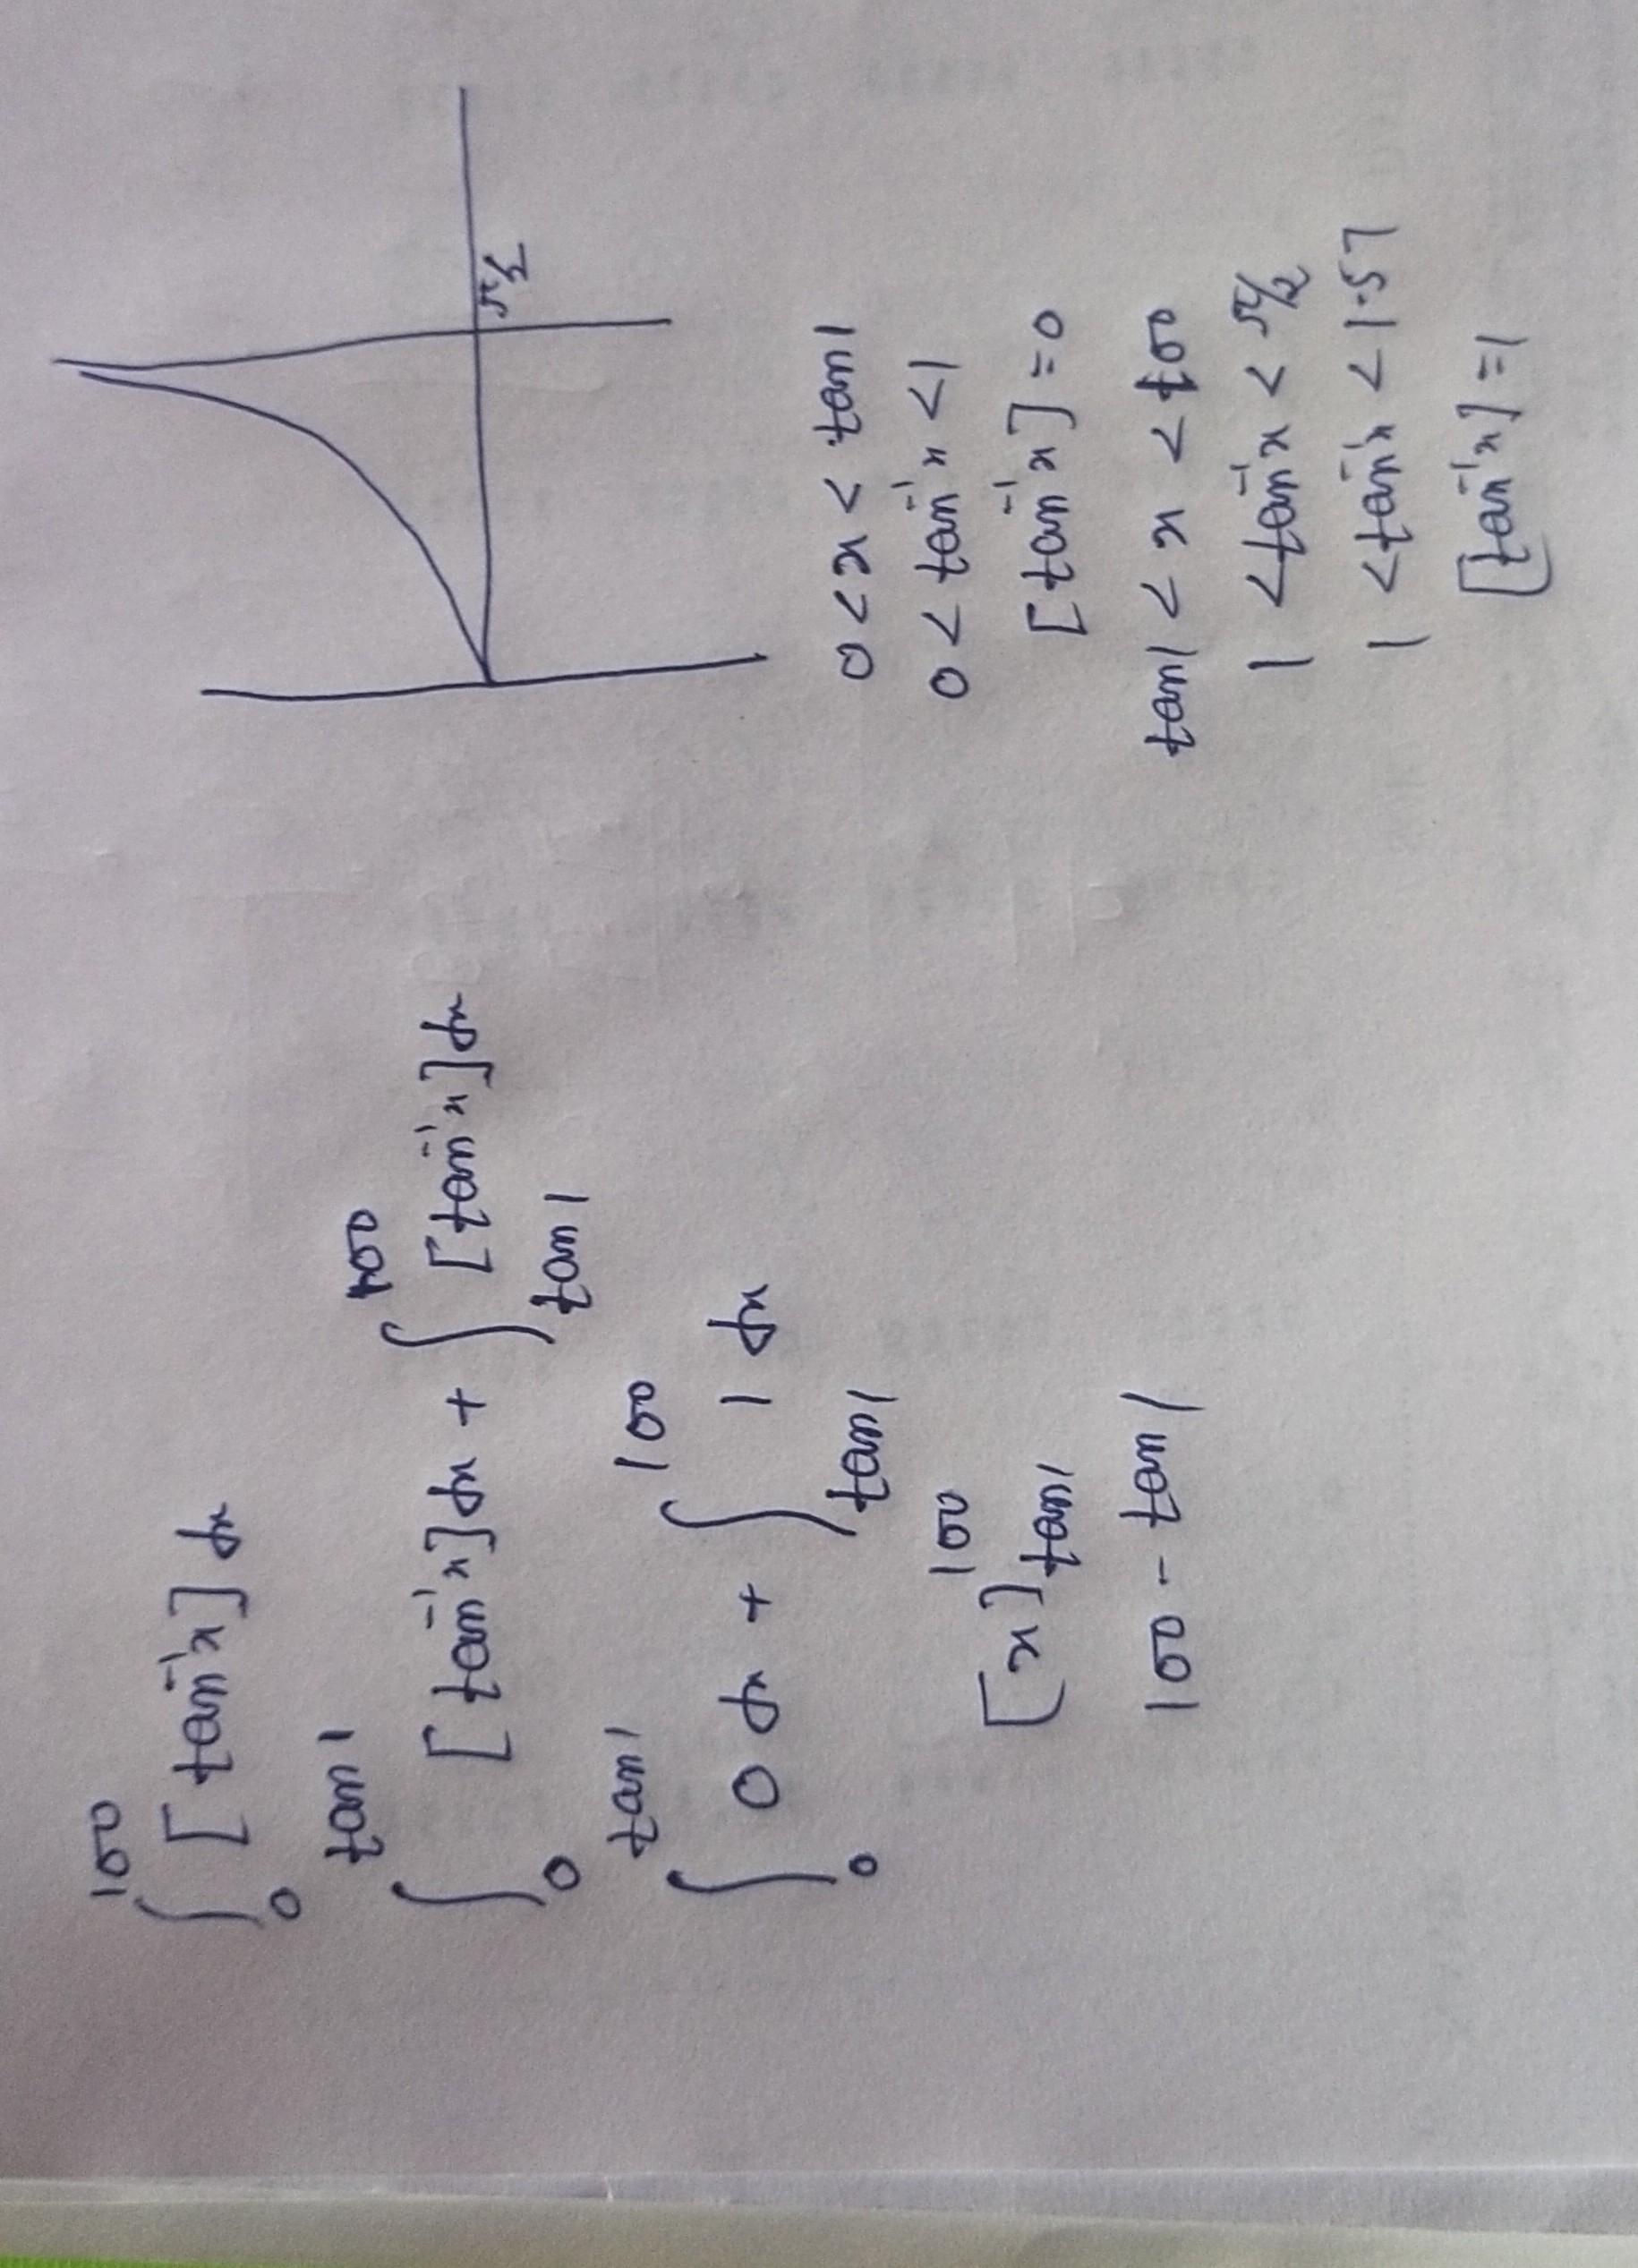 ∫₀¹⁰⁰ [tan⁻¹x] dx
∫₀^{tan1} [tan⁻¹x] dx + ∫_{tan1}^{100} [tan⁻¹x] dx
∫₀^{tan1} 0 dx + ∫_{tan1}^{100} 1 dx
[x]_{tan1}^{100}
100 - tan1
π/2
0 < x < tan1
0 < tan⁻¹x < 1
[tan⁻¹x] = 0
tan1 < x < 100
1 < tan⁻¹x < π/2
1 < tan⁻¹x < 1.57
[tan⁻¹x] = 1